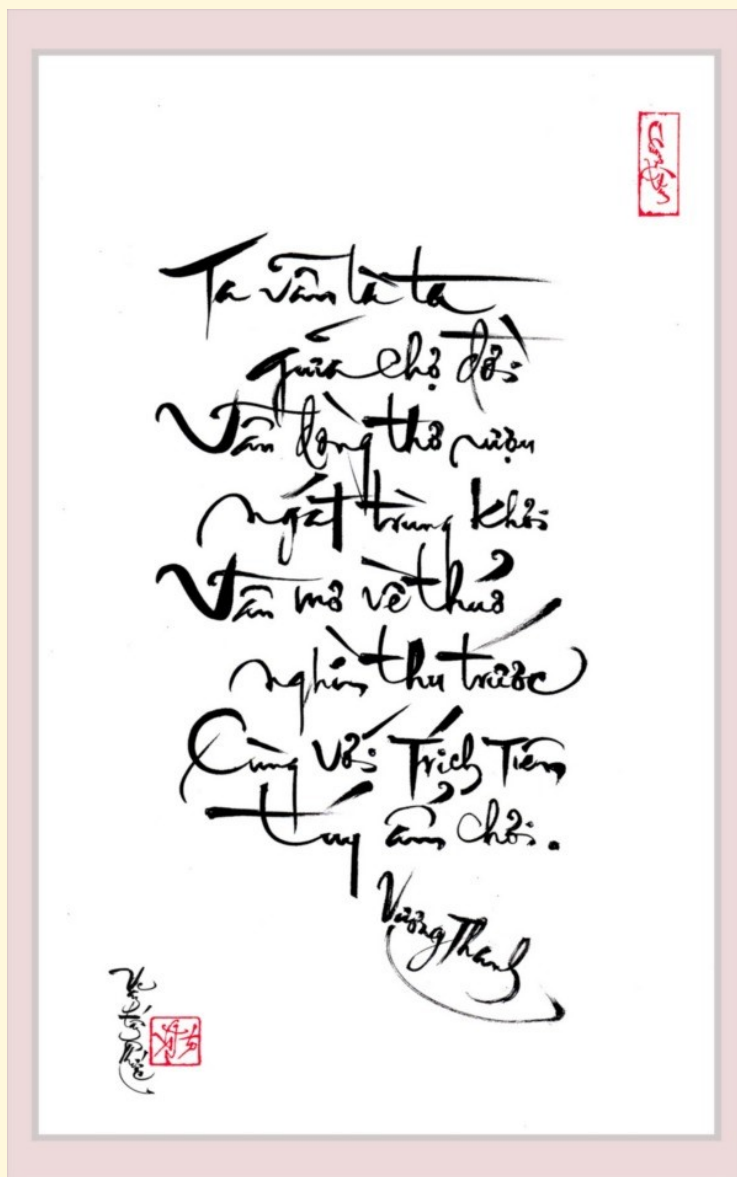 Ta vẫn là ta
giữa chợ đời
Vẫn dòng thơ rượu
ngất trùng khơi
Vẫn mơ về thuở
nghìn thu trước
Cùng với Trích Tiên
túy ẩm chơi.
Vương Thanh